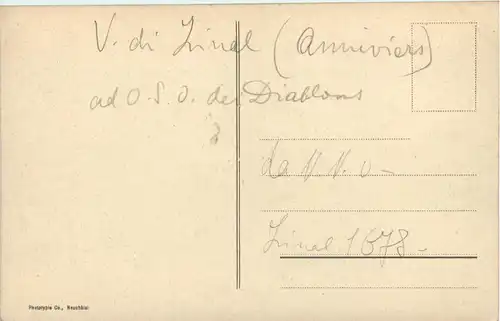 V. di Zinal (Anniviers)
ad O. S. O. dei Diablons
da N. N. O -
Zinal 1678 -
Phototypie Co., Neuchâtel